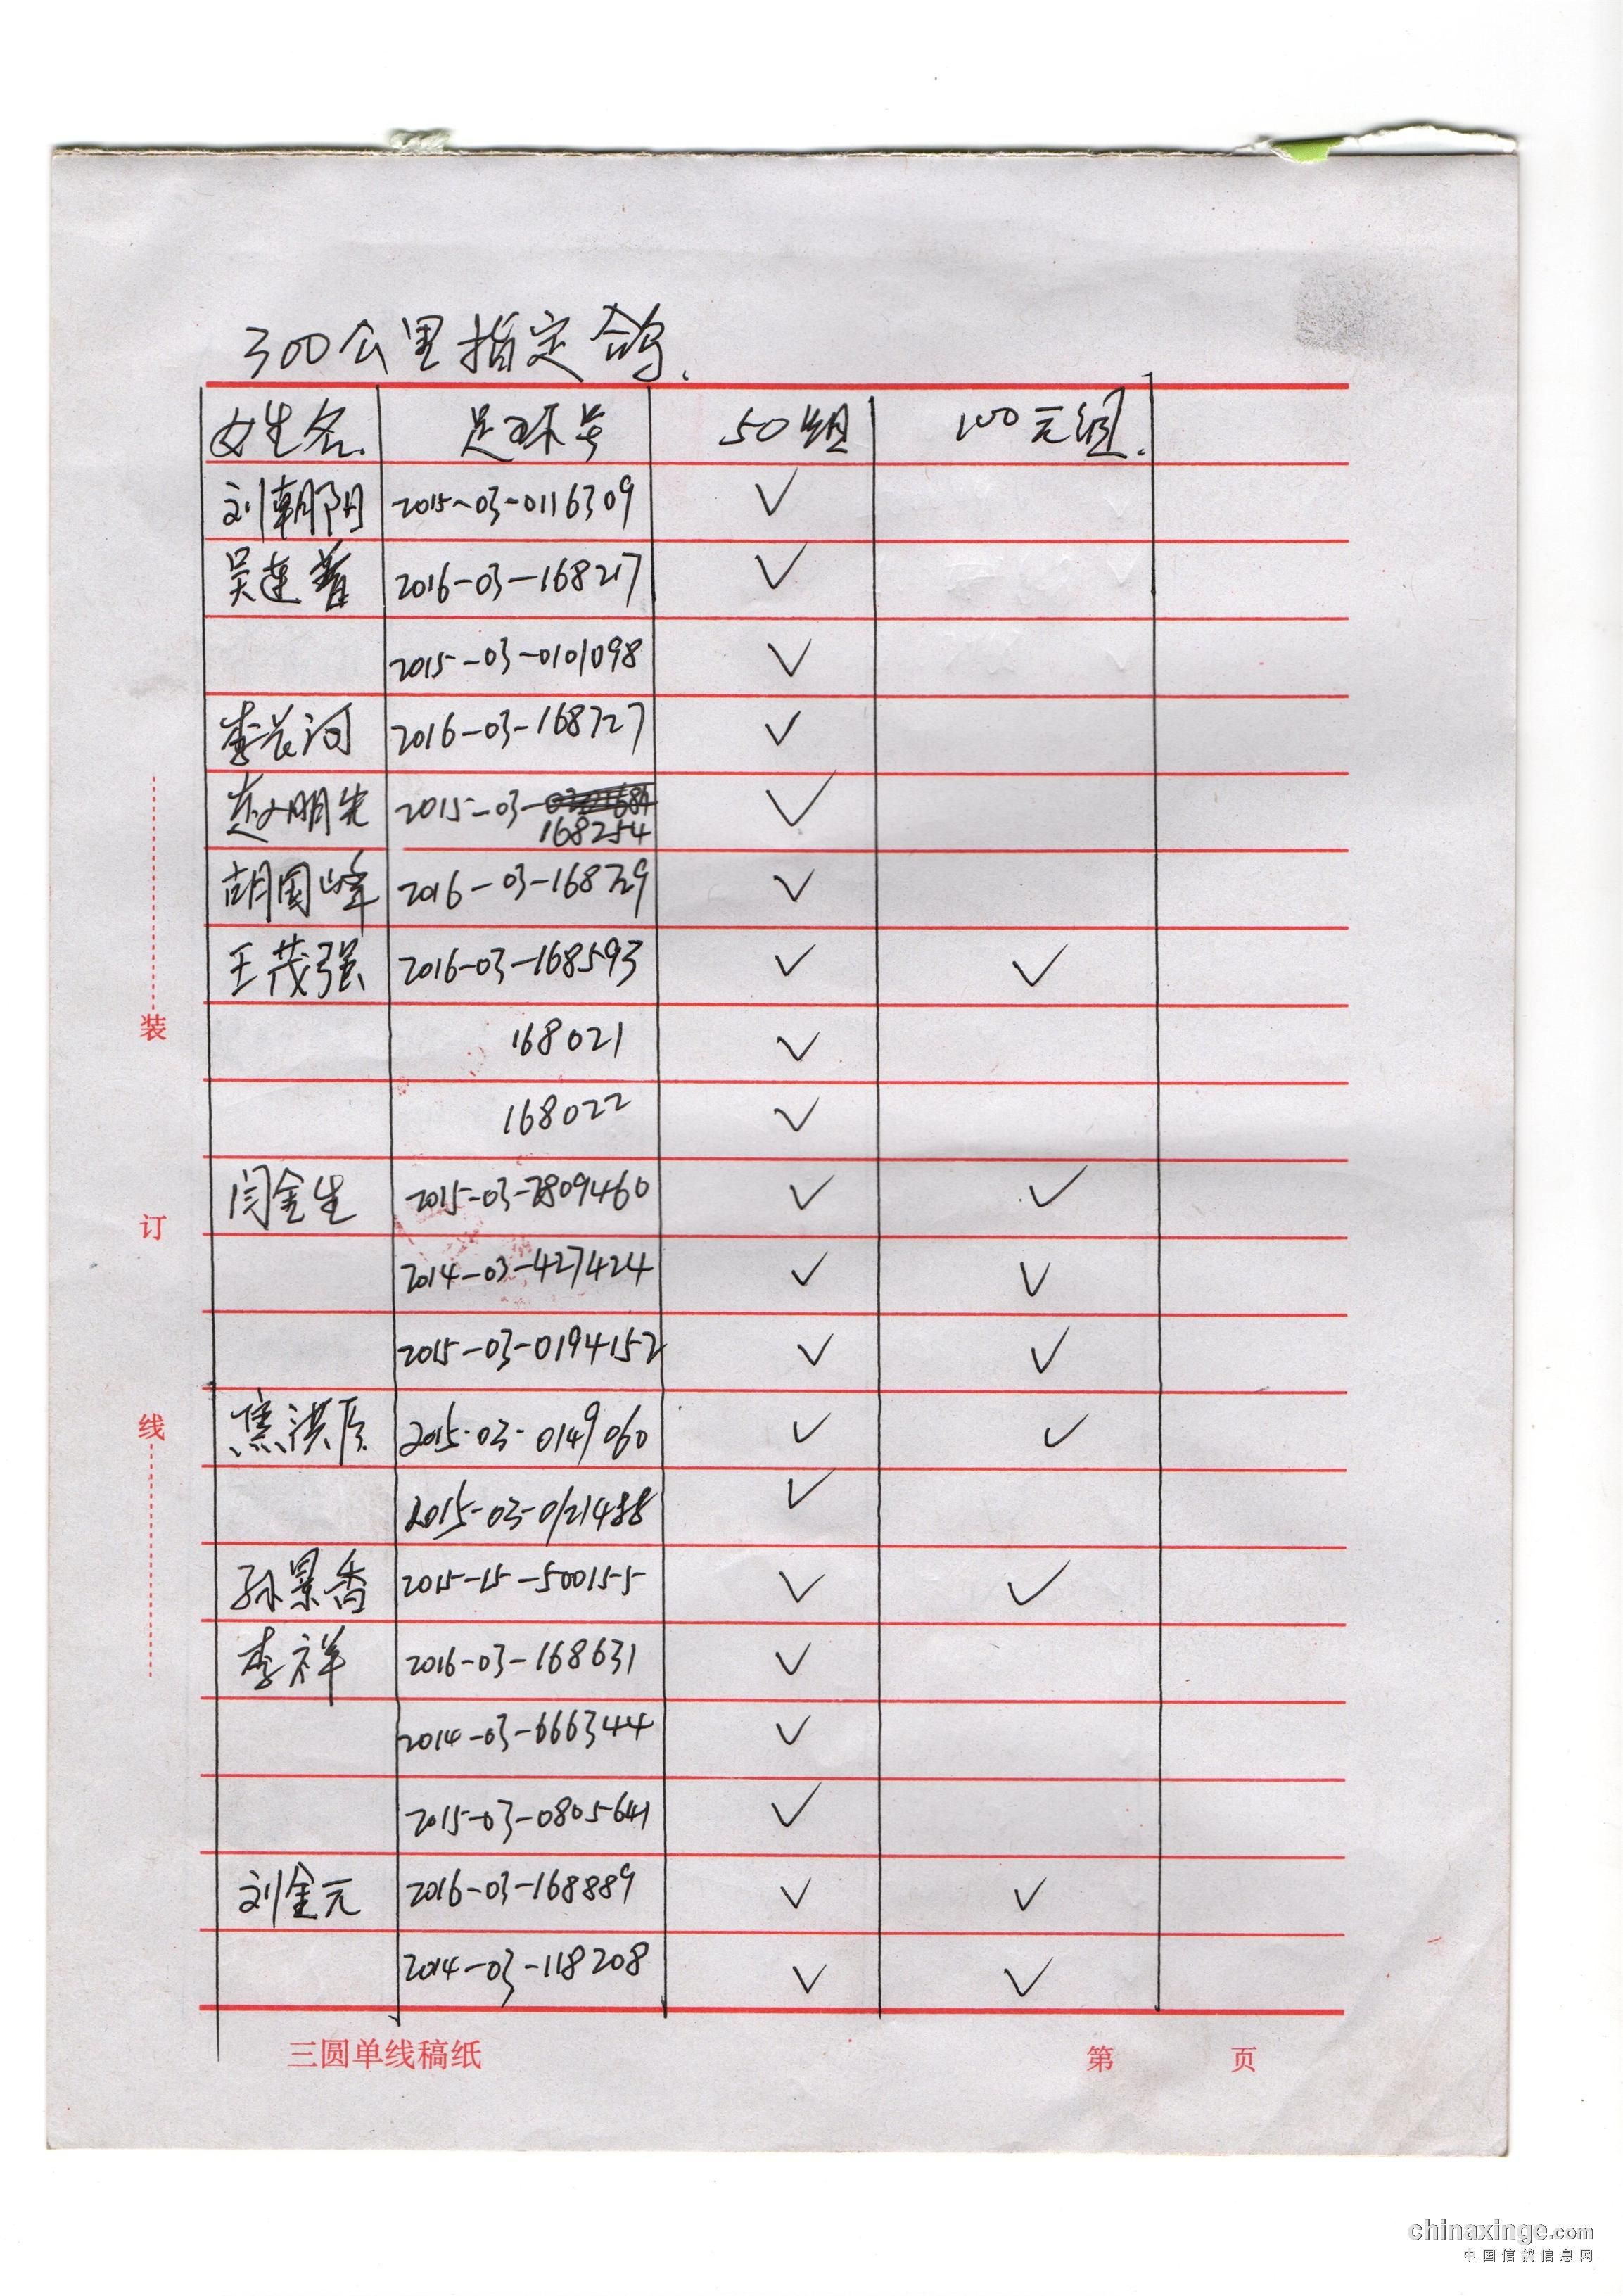 300公里指定鸽.
姓名. 足环号 50组 100元组.
刘朝阳 2015-03-0116309 ✓
吴连普 2016-03-168217 ✓
2015-03-0101098 ✓
李长河 2016-03-168727 ✓
赵明先 2015-03-
168254 ✓
胡国峰 2016-03-168729 ✓
王茂强 2016-03-168593 ✓ ✓
168021 ✓
装
168022 ✓
闫金生 2015-03-2809460 ✓ ✓
订
2014-03-427424 ✓ ✓
2015-03-0194152 ✓ ✓
线
焦洪 2015-03-0149060 ✓ ✓
2015-03-0121488 ✓
孙景香 2015-15-500155 ✓ ✓
李祥 2016-03-168631 ✓
2014-03-666344 ✓
2015-03-0805641 ✓
刘金元 2016-03-168889 ✓ ✓
2014-03-118208 ✓ ✓
三圆单线稿纸 第 页
chinaxinge.com
中国信鸽信息网